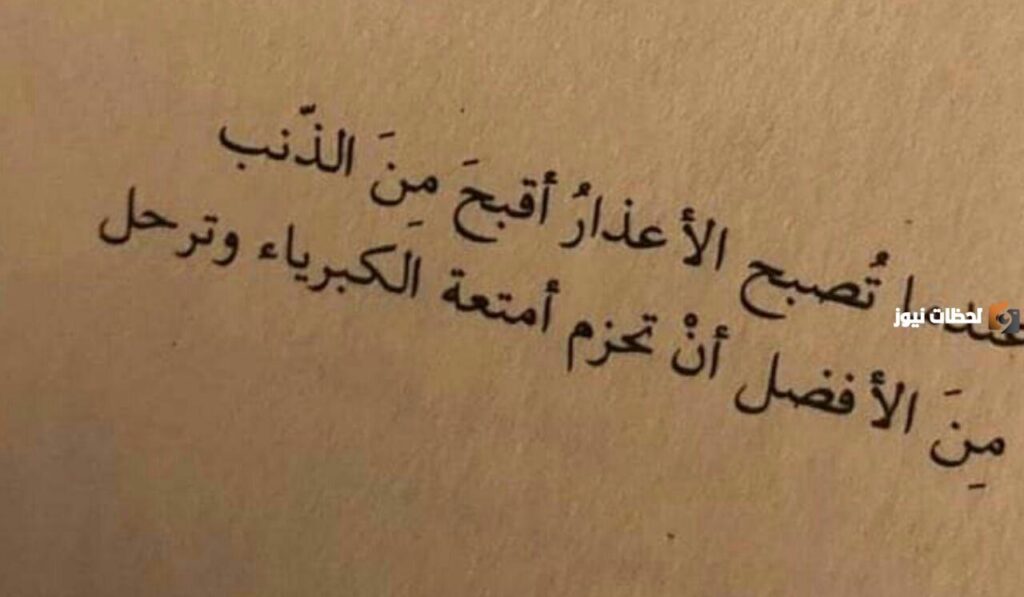 عندما تُصبح الأعذارُ أقبحَ مِنَ الذّنب
مِنَ الأفضل أنْ تحزم أمتعة الكبرياء وترحل
لحظات نيوز